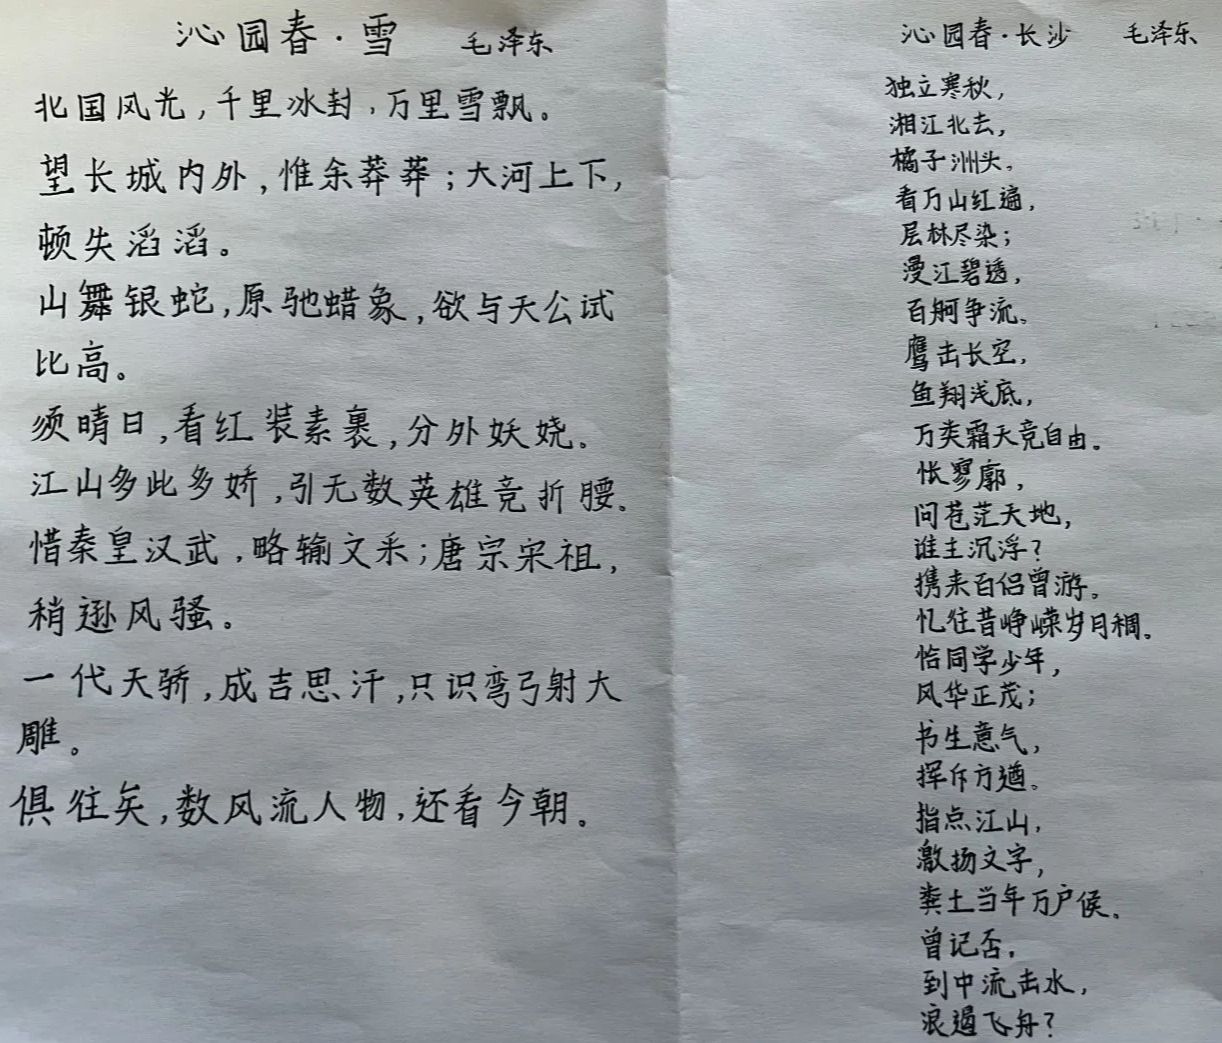 沁园春·雪 毛泽东
北国风光，千里冰封，万里雪飘。
望长城内外，惟余莽莽；大河上下，
顿失滔滔。
山舞银蛇，原驰蜡象，欲与天公试
比高。
须晴日，看红装素裹，分外妖娆。
江山多此多娇，引无数英雄竞折腰。
惜秦皇汉武，略输文采；唐宗宋祖，
稍逊风骚。
一代天骄，成吉思汗，只识弯弓射大
雕。
俱往矣，数风流人物，还看今朝。
沁园春·长沙 毛泽东
独立寒秋，
湘江北去，
橘子洲头。
看万山红遍，
层林尽染；
漫江碧透，
百舸争流。
鹰击长空，
鱼翔浅底，
万类霜天竞自由。
怅寥廓，
问苍茫天地，
谁主沉浮？
携来百侣曾游。
忆往昔峥嵘岁月稠。
恰同学少年，
风华正茂；
书生意气，
挥斥方遒。
指点江山，
激扬文字，
粪土当年万户侯。
曾记否，
到中流击水，
浪遏飞舟？